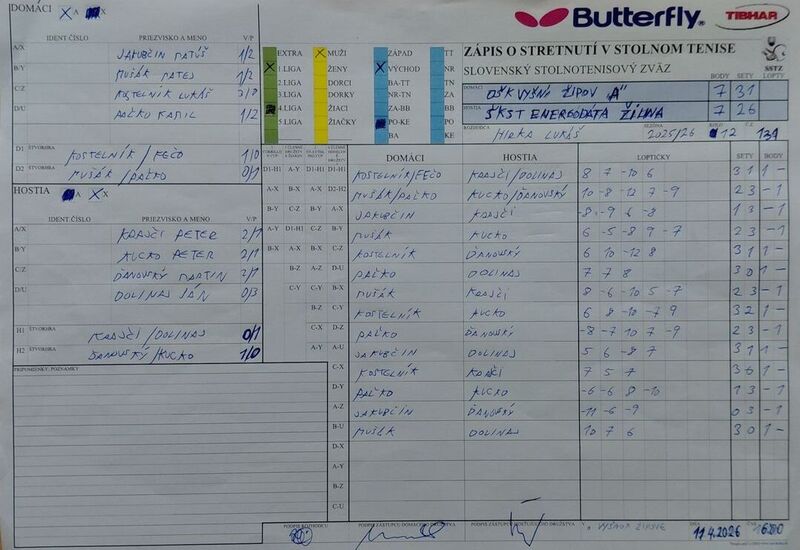 DOMÁCI X A X
Butterfly
TIBHAR
IDENT.ČÍSLO PRIEZVISKO A MENO V/P
A/X JAKUBČIN MATÚŠ 1/2
B/Y MUŠÁK MATEJ 1/2
C/Z KOSTELNÍK LUKÁŠ
D/U PAČKO KAMIL 1/2
D1 ŠTVORHRA KOSTELNÍK / FEČO 1/0
D2 ŠTVORHRA MUŠÁK / PAČKO 0/1
EXTRA X MUŽI ZÁPAD TT
X 1 LIGA ŽENY X VÝCHOD NR
2 LIGA DORCI BA-TT TN
3 LIGA DORKY NR-TN ZA
4 LIGA ŽIACI ZA-BB BB
5 LIGA ŽIAČKY PO-KE PO
BA KE
ZÁPIS O STRETNUTÍ V STOLNOM TENISE
SLOVENSKÝ STOLNOTENISOVÝ ZVÄZ
SSTZ
BODY SETY LOPTY
DOMÁCI OŠK VYŠNÁ ŽIPOV "A" 7 31
HOSTIA ŠKST ENERGODATA ŽILINA 7 26
ROZHODCA HIRKA LUKÁŠ SEZÓNA 2025/26 KOLO 12 Č.Z. 134
HOSTIA A X X
IDENT.ČÍSLO PRIEZVISKO A MENO V/P
A/X KRAJČI PETER 2/1
B/Y KUCKO PETER 2/1
C/Z ĎANOVSKÝ MARTIN 2/1
D/U DOLINAJ JÁN 0/3
H1 ŠTVORHRA KRAJČI / DOLINAJ 0/1
H2 ŠTVORHRA ĎANOVSKÝ / KUCKO 1/0
PRIPOMIENKY, POZNÁMKY
DOMÁCI HOSTIA LOPTIČKY SETY BODY
D1-H1 A-Y D1-H1 A-Y D1-H1 KOSTELNÍK/FEČO KRAJČI/DOLINAJ 8 7 -10 6 3 1 1 -
A-X B-X A-X B-X D2-H2 MUŠÁK/PAČKO KUCKO/ĎANOVSKÝ 10 -8 -12 7 -9 2 3 - 1
B-Y C-Z B-Y C-Z A-X JAKUBČIN KRAJČI -8 -9 6 -8 1 3 - 1
A-Y D1-H1 C-X C-Z B-Y MUŠÁK KUCKO 6 -5 -8 9 -7 2 3 - 1
B-X A-X A-Z B-X C-Z KOSTELNÍK ĎANOVSKÝ 6 10 -12 8 3 1 1 -
B-Z A-Z D-U PAČKO DOLINAJ 7 7 8 3 0 1 -
C-Y B-X MUŠÁK KRAJČI 8 -6 -10 5 -7 2 3 - 1
B-Z C-Y KOSTELNÍK KUCKO 6 8 -10 -7 9 3 2 1 -
C-X D-Z PAČKO ĎANOVSKÝ -8 -7 10 7 -9 2 3 - 1
A-Y A-U JAKUBČIN DOLINAJ 5 6 -8 7 3 1 1 -
C-X KOSTELNÍK KRAJČI 7 5 7 3 0 1 -
D-Y PAČKO KUCKO -6 -6 8 -10 1 3 - 1
A-Z JAKUBČIN ĎANOVSKÝ -11 -6 -9 0 3 - 1
B-U MUŠÁK DOLINAJ 10 7 6 3 0 1 -
D-X
A-Y
B-Z
C-U
PODPIS ROZHODCU PODPIS ZÁSTUPCU DOMÁCEHO DRUŽSTVA PODPIS ZÁSTUPCU HOSŤUJÚCEHO DRUŽSTVA V VYŠNOM ŽIPOVE DŇA 11.4.2026